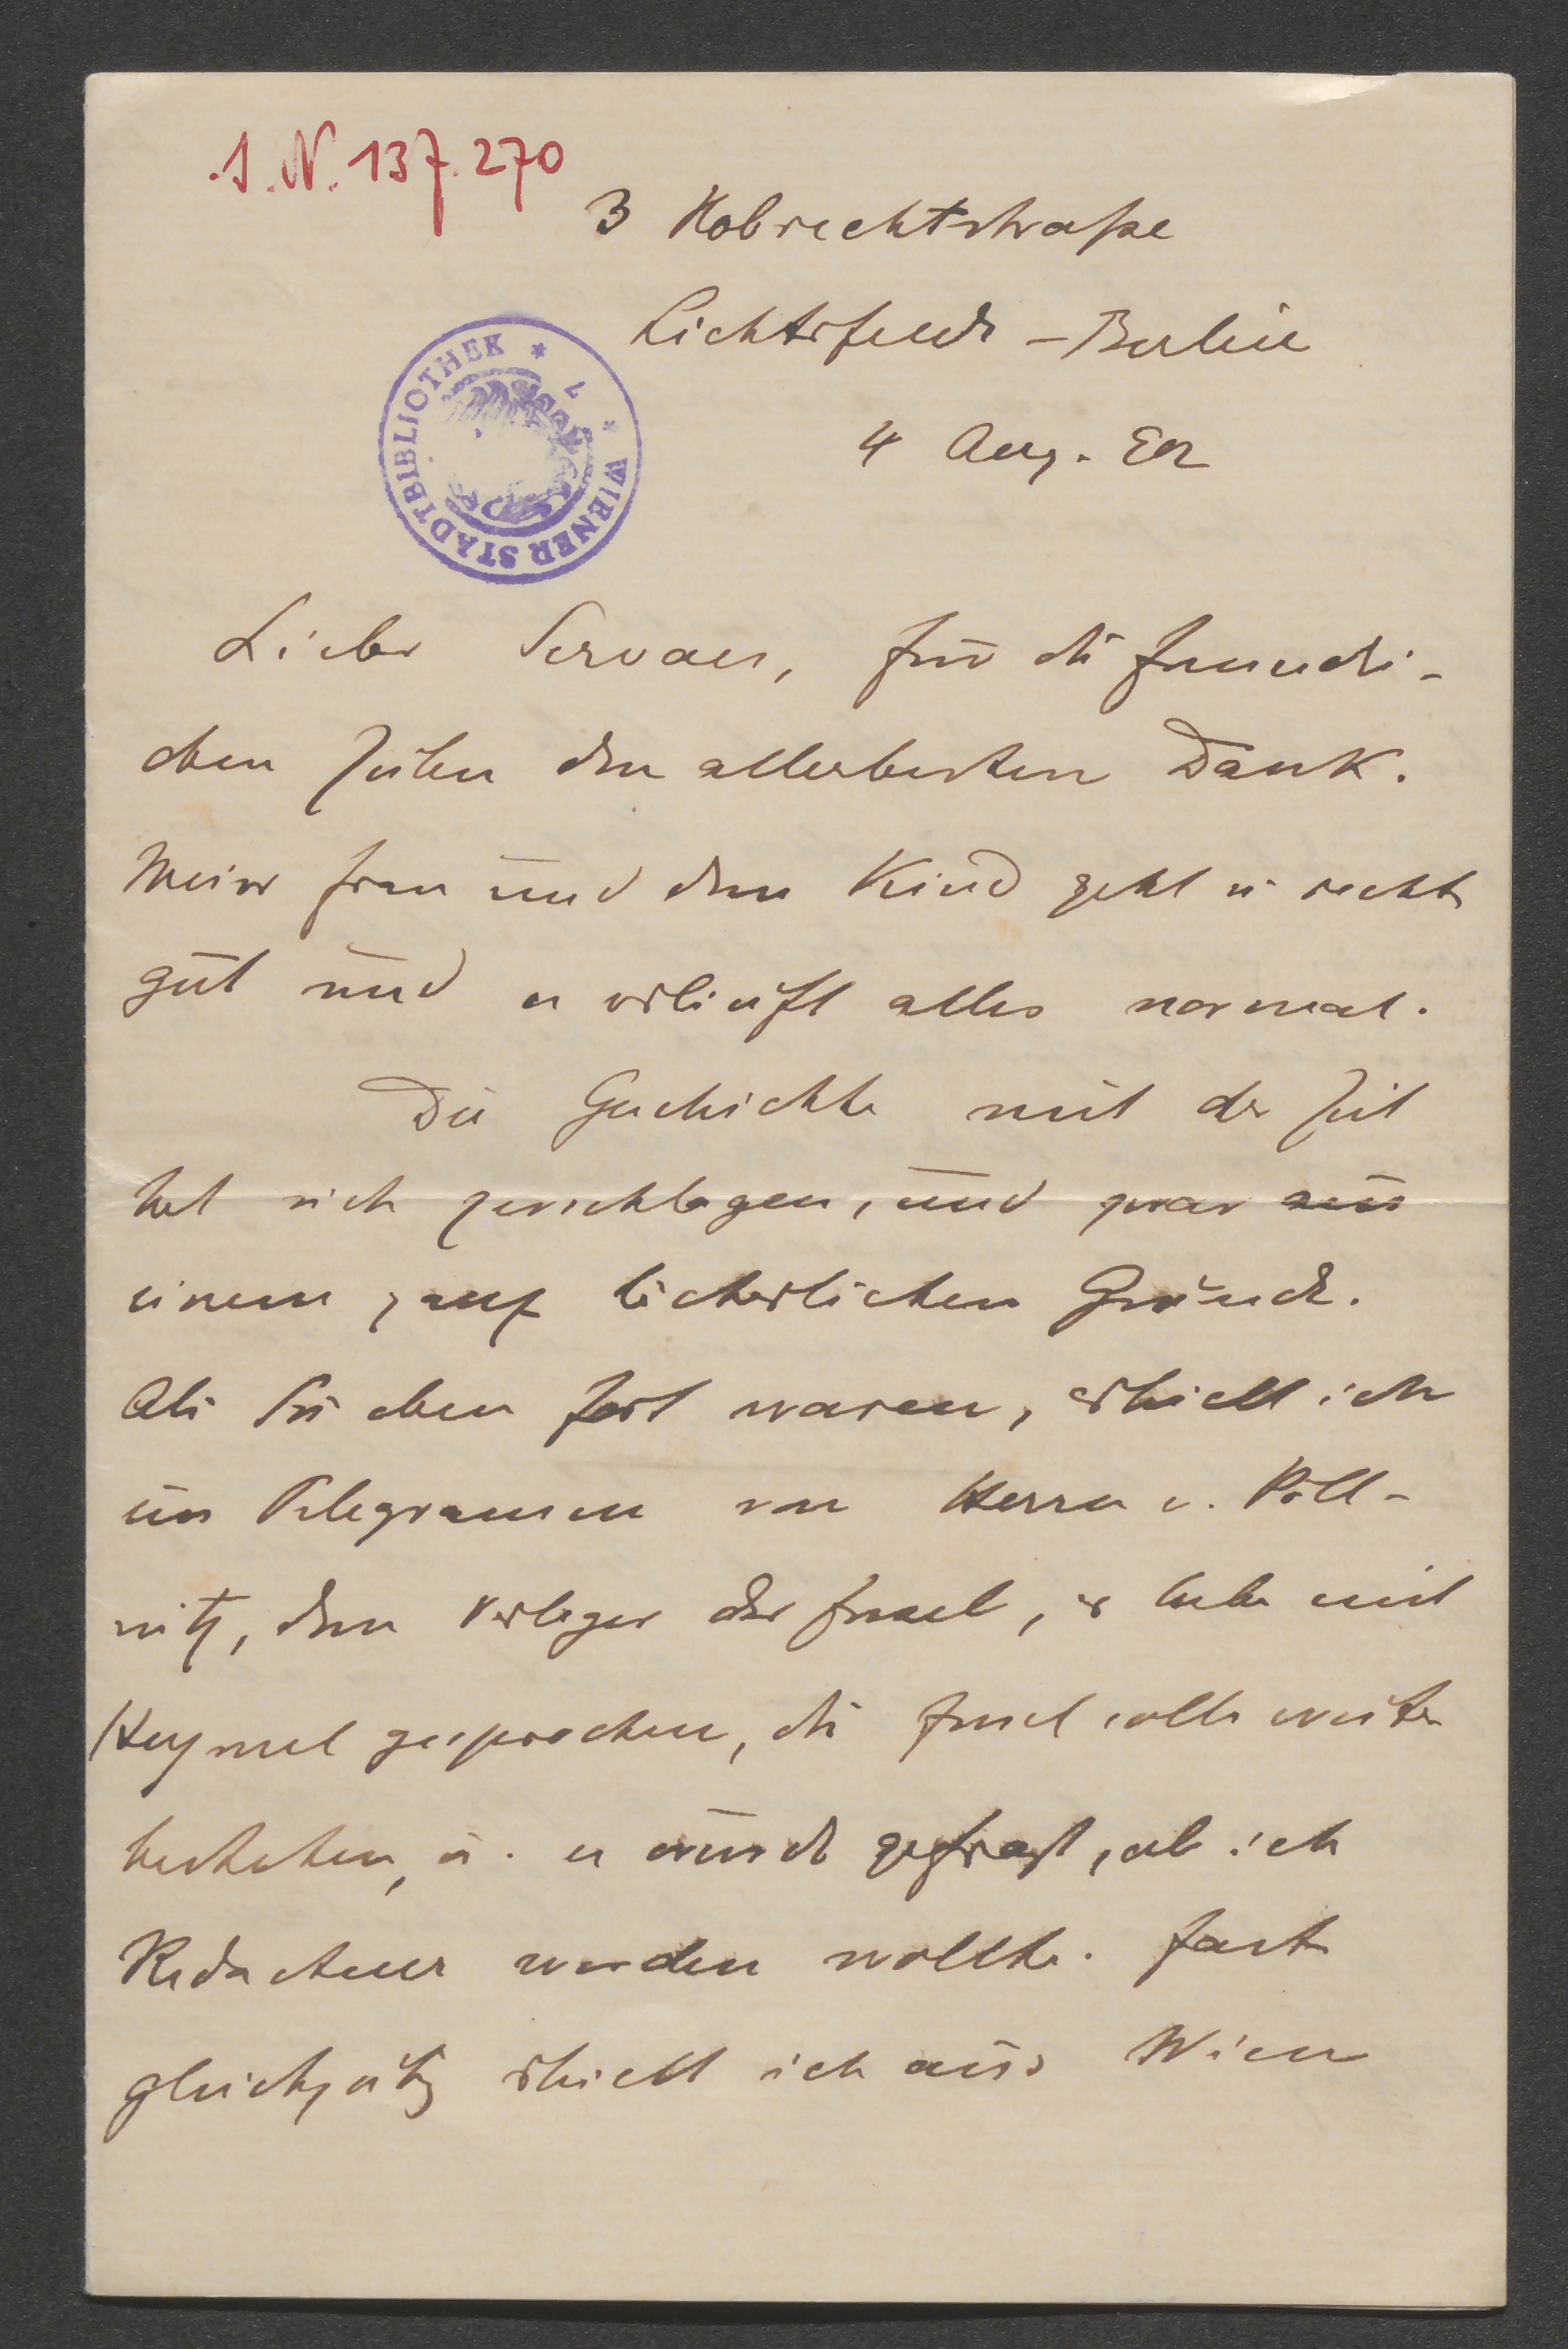 I. N. 137.270
3 Hobrechtstraße
Lichterfelde - Berlin
WIENER STADTBIBLIOTHEK
4 Aug. 02
Lieber Servaes, für die freundli-
chen Zeilen den allerbesten Dank.
Meiner Frau und dem Kind geht es recht
gut und es verläuft alles normal.
Die Geschichte mit der Zeit
hat sich zerschlagen, und zwar aus
einem ganz lächerlichen Grunde.
Als Sie eben fort waren, erhielt ich
ein Telegramm von Herrn v. Pöll-
nitz, dem Verleger der Insel, er habe mit
Heymel gesprochen, die Insel solle weiter
bestehen, u. es würde gefragt, ob ich
Redacteur werden wollte. Fast
gleichzeitig erhielt ich aus Wien